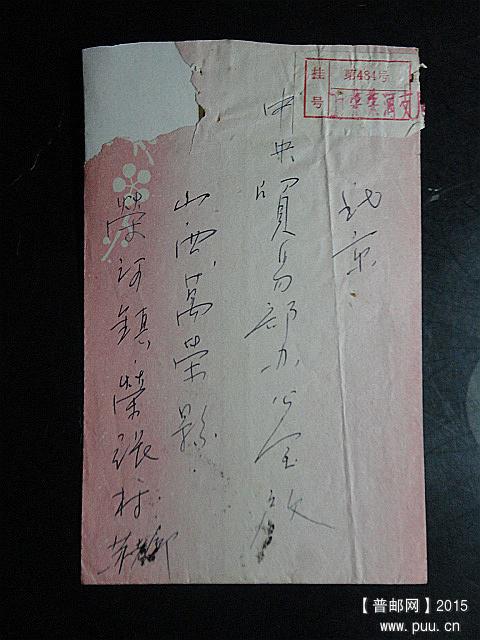 挂号
第484号
北京
中央貿易部办公室啟
山西萬荣縣
榮河鎮榮張村
【普邮网】2015
www.puu.cn